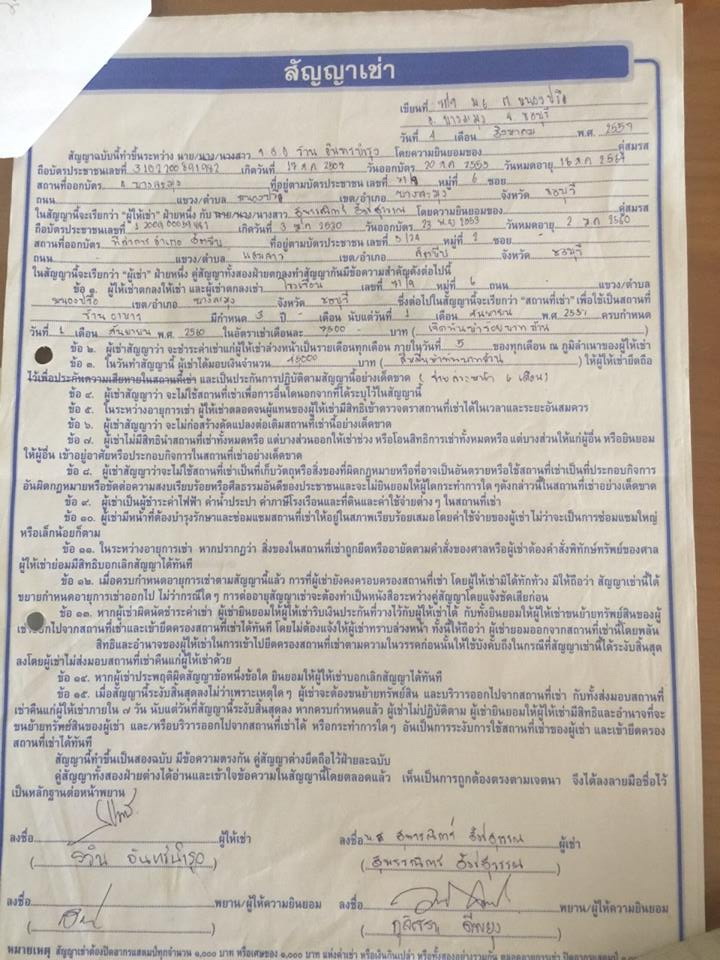 สัญญาเช่า
เขียนที่ ม 6
จ ชลบุรี
วันที่ 1 เดือน สิงหาคม พ.ศ. 2557
สัญญาฉบับนี้ทำขึ้นระหว่าง นาย/นาง/นางสาว โดยความยินยอมของ คู่สมรส
ถือบัตรประชาชนเลขที่ เกิดวันที่ วันออกบัตร วันหมดอายุ
สถานที่ออกบัตร ที่อยู่ตามบัตรประชาชน เลขที่ หมู่ที่ 6 ซอย
ถนน แขวง/ตำบล เขต/อำเภอ บางละมุง จังหวัด ชลบุรี
ในสัญญานี้จะเรียกว่า "ผู้ให้เช่า" ฝ่ายหนึ่ง กับ นาย/นาง/นางสาว โดยความยินยอมของ คู่สมรส
ถือบัตรประชาชนเลขที่ เกิดวันที่ วันออกบัตร วันหมดอายุ
สถานที่ออกบัตร ที่อยู่ตามบัตรประชาชน เลขที่ 5/24 หมู่ที่ 2 ซอย
ถนน แขวง/ตำบล เขต/อำเภอ สัตหีบ จังหวัด ชลบุรี
ในสัญญานี้จะเรียกว่า "ผู้เช่า" ฝ่ายหนึ่ง คู่สัญญาทั้งสองฝ่ายตกลงทำสัญญากันมีข้อความสำคัญดังต่อไปนี้
ข้อ ๑. ผู้ให้เช่าตกลงให้เช่า และผู้เช่าตกลงเช่า เลขที่ หมู่ที่ 6 ถนน แขวง/ตำบล
หนองปรือ เขต/อำเภอ บางละมุง จังหวัด ชลบุรี ซึ่งต่อไปในสัญญานี้จะเรียกว่า "สถานที่เช่า" เพื่อใช้เป็นสถานที่
ร้านอาหาร มีกำหนด 3 ปี - เดือน นับแต่วันที่ 1 เดือน กันยายน พ.ศ. 2557 ครบกำหนด
วันที่ 1 เดือน กันยายน พ.ศ. 2560 ในอัตราค่าเช่าเดือนละ 7500 บาท (เจ็ดพันห้าร้อยบาทถ้วน)
ข้อ ๒. ผู้เช่าสัญญาว่า จะชำระค่าเช่าแก่ผู้ให้เช่าล่วงหน้าเป็นรายเดือนทุกเดือน ภายในวันที่ 5 ของทุกเดือน ณ ภูมิลำเนาของผู้ให้เช่า
ข้อ ๓. ในวันทำสัญญานี้ ผู้เช่าได้มอบเงินจำนวน 45000 บาท (สี่หมื่นห้าพันบาทถ้วน) ให้ผู้ให้เช่ายึดถือ
ไว้เพื่อประกันความเสียหายในสถานที่เช่า และเป็นประกันการปฏิบัติตามสัญญานี้อย่างเด็ดขาด (จ่ายล่วงหน้า 6 เดือน)
ข้อ ๔. ผู้เช่าสัญญาว่า จะไม่ใช้สถานที่เช่าเพื่อการอื่นใดนอกจากที่ได้ระบุไว้ในสัญญานี้
ข้อ ๕. ในระหว่างอายุการเช่า ผู้ให้เช่าตลอดจนผู้แทนของผู้ให้เช่ามีสิทธิเข้าตรวจตราสถานที่เช่าได้ในเวลาและระยะอันสมควร
ข้อ ๖. ผู้เช่าสัญญาว่า จะไม่ก่อสร้างดัดแปลงต่อเติมสถานที่เช่านี้อย่างเด็ดขาด
ข้อ ๗. ผู้เช่าไม่มีสิทธินำสถานที่เช่าทั้งหมดหรือ แต่บางส่วนออกให้เช่าช่วง หรือโอนสิทธิการเช่าทั้งหมดหรือ แต่บางส่วนให้แก่ผู้อื่น หรือยินยอม
ให้ผู้อื่น เข้าอยู่อาศัยหรือประกอบกิจการในสถานที่เช่าอย่างเด็ดขาด
ข้อ ๘. ผู้เช่าสัญญาว่าจะไม่ใช้สถานที่เช่าเป็นที่เก็บวัตถุหรือสิ่งของที่ผิดกฎหมายหรือที่อาจเป็นอันตรายหรือใช้สถานที่เช่าเป็นที่ประกอบกิจการ
อันผิดกฎหมายหรือขัดต่อความสงบเรียบร้อยหรือศีลธรรมอันดีของประชาชนและจะไม่ยินยอมให้ผู้ใดกระทำการใด ๆดังกล่าวนี้ในสถานที่เช่าอย่างเด็ดขาด
ข้อ ๙. ผู้เช่าเป็นผู้ชำระค่าไฟฟ้า ค่าน้ำประปา ค่าภาษีโรงเรือนและที่ดินและค่าใช้จ่ายต่างๆ ในสถานที่เช่า
ข้อ ๑๐. ผู้เช่ามีหน้าที่ต้องบำรุงรักษาและซ่อมแซมสถานที่เช่าให้อยู่ในสภาพเรียบร้อยเสมอโดยค่าใช้จ่ายของผู้เช่า ไม่ว่าจะเป็นการซ่อมแซมใหญ่
หรือเล็กน้อยก็ตาม
ข้อ ๑๑. ในระหว่างอายุการเช่า หากปรากฏว่า สิ่งของในสถานที่เช่าถูกยึดหรืออายัดตามคำสั่งของศาลหรือผู้เช่าต้องคำสั่งพิทักษ์ทรัพย์ของศาล
ผู้ให้เช่าย่อมมีสิทธิบอกเลิกสัญญาได้ทันที
ข้อ ๑๒. เมื่อครบกำหนดอายุการเช่าตามสัญญานี้แล้ว การที่ผู้เช่ายังคงครอบครองสถานที่เช่า โดยผู้ให้เช่ามิได้ทักท้วง มิให้ถือว่า สัญญาเช่านี้ได้
ขยายกำหนดอายุการเช่าออกไป ไม่ว่ากรณีใดๆ การต่ออายุสัญญาเช่าจะต้องทำเป็นหนังสือระหว่างคู่สัญญาโดยแจ้งชัดเสียก่อน
ข้อ ๑๓. หากผู้เช่าผิดนัดชำระค่าเช่า ผู้เช่ายินยอมให้ผู้ให้เช่าริบเงินประกันที่วางไว้กับผู้ให้เช่าได้ กับทั้งยินยอมให้ผู้ให้เช่าขนย้ายทรัพย์สินของผู้
เช่าออกไปจากสถานที่เช่าและเข้ายึดครองสถานที่เช่าได้ทันที โดยไม่ต้องแจ้งให้ผู้เช่าทราบล่วงหน้า ทั้งนี้ให้ถือว่า ผู้เช่ายอมออกจากสถานที่เช่านี้โดยพลัน
สิทธิและอำนาจของผู้ให้เช่าในการเข้าไปยึดครองสถานที่เช่าตามความในวรรคก่อนนั้นให้ใช้บังคับถึงในกรณีที่สัญญาเช่านี้ได้ระงับสิ้นสุด
ลงโดยผู้เช่าไม่ส่งมอบสถานที่เช่าคืนแก่ผู้ให้เช่าด้วย
ข้อ ๑๔. หากผู้เช่าประพฤติผิดสัญญาข้อหนึ่งข้อใด ยินยอมให้ผู้ให้เช่าบอกเลิกสัญญานี้ได้ทันที
ข้อ ๑๕. เมื่อสัญญานี้ระงับสิ้นสุดลงไม่ว่าเพราะเหตุใดๆ ผู้เช่าจะต้องขนย้ายทรัพย์สิน และบริวารออกไปจากสถานที่เช่า กับทั้งส่งมอบสถานที่
เช่าคืนแก่ผู้ให้เช่าภายใน ๗ วัน นับแต่วันที่สัญญานี้ระงับสิ้นสุดลง หากครบกำหนดแล้ว ผู้เช่าไม่ปฏิบัติตาม ผู้เช่ายินยอมให้ผู้ให้เช่ามีสิทธิและอำนาจที่จะ
ขนย้ายทรัพย์สินของผู้เช่า และ/หรือบริวารออกไปจากสถานที่เช่าได้ หรือกระทำการใดๆ อันเป็นการระงับการใช้สถานที่เช่าของผู้เช่า และเข้ายึดครอง
สถานที่เช่าได้ทันที
สัญญานี้ทำขึ้นเป็นสองฉบับ มีข้อความตรงกัน คู่สัญญาต่างยึดถือไว้ฝ่ายละฉบับ
คู่สัญญาทั้งสองฝ่ายต่างได้อ่านและเข้าใจข้อความในสัญญานี้โดยตลอดแล้ว เห็นเป็นการถูกต้องตรงตามเจตนา จึงได้ลงลายมือชื่อไว้
เป็นหลักฐานต่อหน้าพยาน
ลงชื่อ ผู้ให้เช่า ลงชื่อ ผู้เช่า
ลงชื่อ พยาน/ผู้ให้ความยินยอม ลงชื่อ พยาน/ผู้ให้ความยินยอม
หมายเหตุ สัญญาเช่าต้องปิดอากรแสตมป์ทุกจำนวน ๑,๐๐๐ บาท หรือเศษของ ๑,๐๐๐ บาท แห่งค่าเช่า หรือเงินกินเปล่า หรือทั้งสองอย่างรวมกัน ตลอดอายุการเช่า